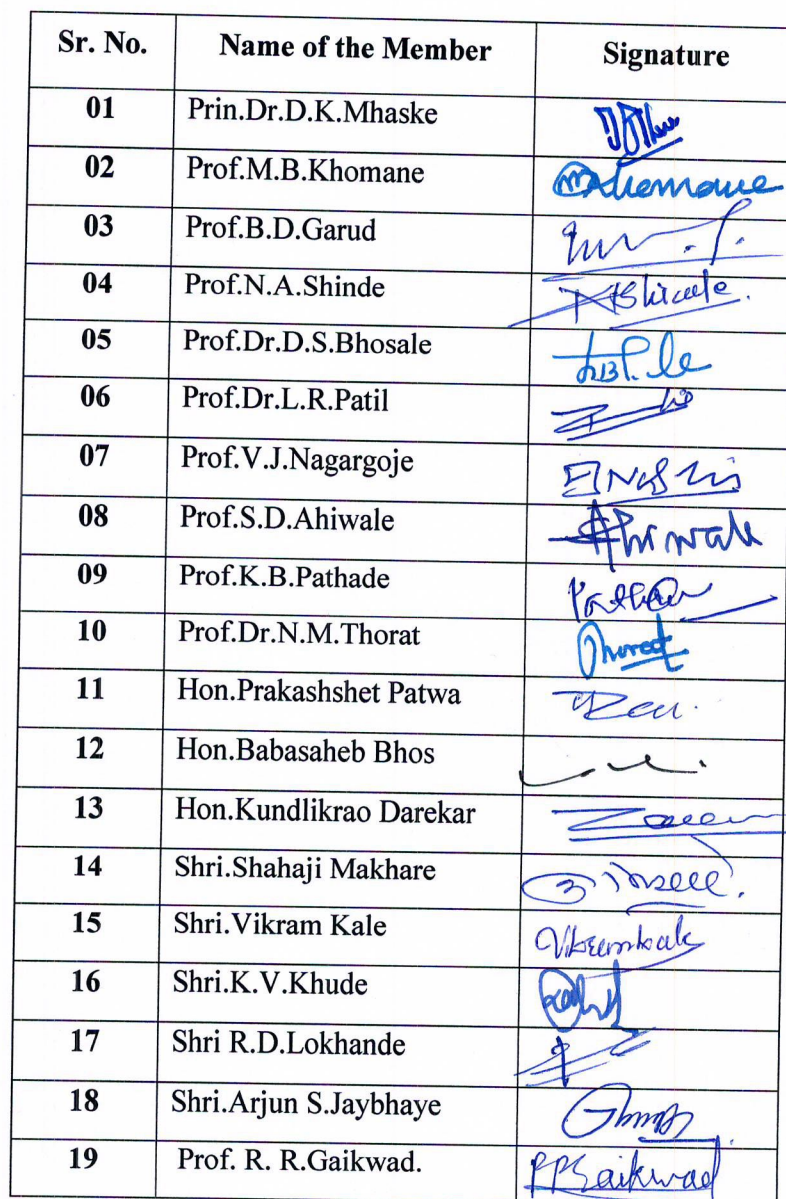 Sr. No. Name of the Member Signature
01 Prin.Dr.D.K.Mhaske
02 Prof.M.B.Khomane
03 Prof.B.D.Garud
04 Prof.N.A.Shinde
05 Prof.Dr.D.S.Bhosale
06 Prof.Dr.L.R.Patil
07 Prof.V.J.Nagargoje
08 Prof.S.D.Ahiwale
09 Prof.K.B.Pathade
10 Prof.Dr.N.M.Thorat
11 Hon.Prakashshet Patwa
12 Hon.Babasaheb Bhos
13 Hon.Kundlikrao Darekar
14 Shri.Shahaji Makhare
15 Shri.Vikram Kale
16 Shri.K.V.Khude
17 Shri R.D.Lokhande
18 Shri.Arjun S.Jaybhaye
19 Prof. R. R.Gaikwad.